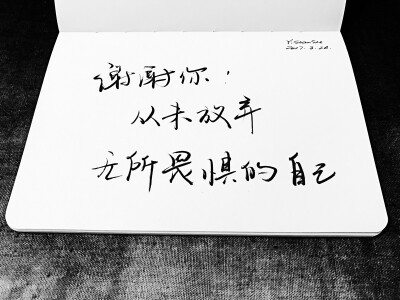 2017. 3. 28.
谢谢你！
从未放弃
无所畏惧的自己